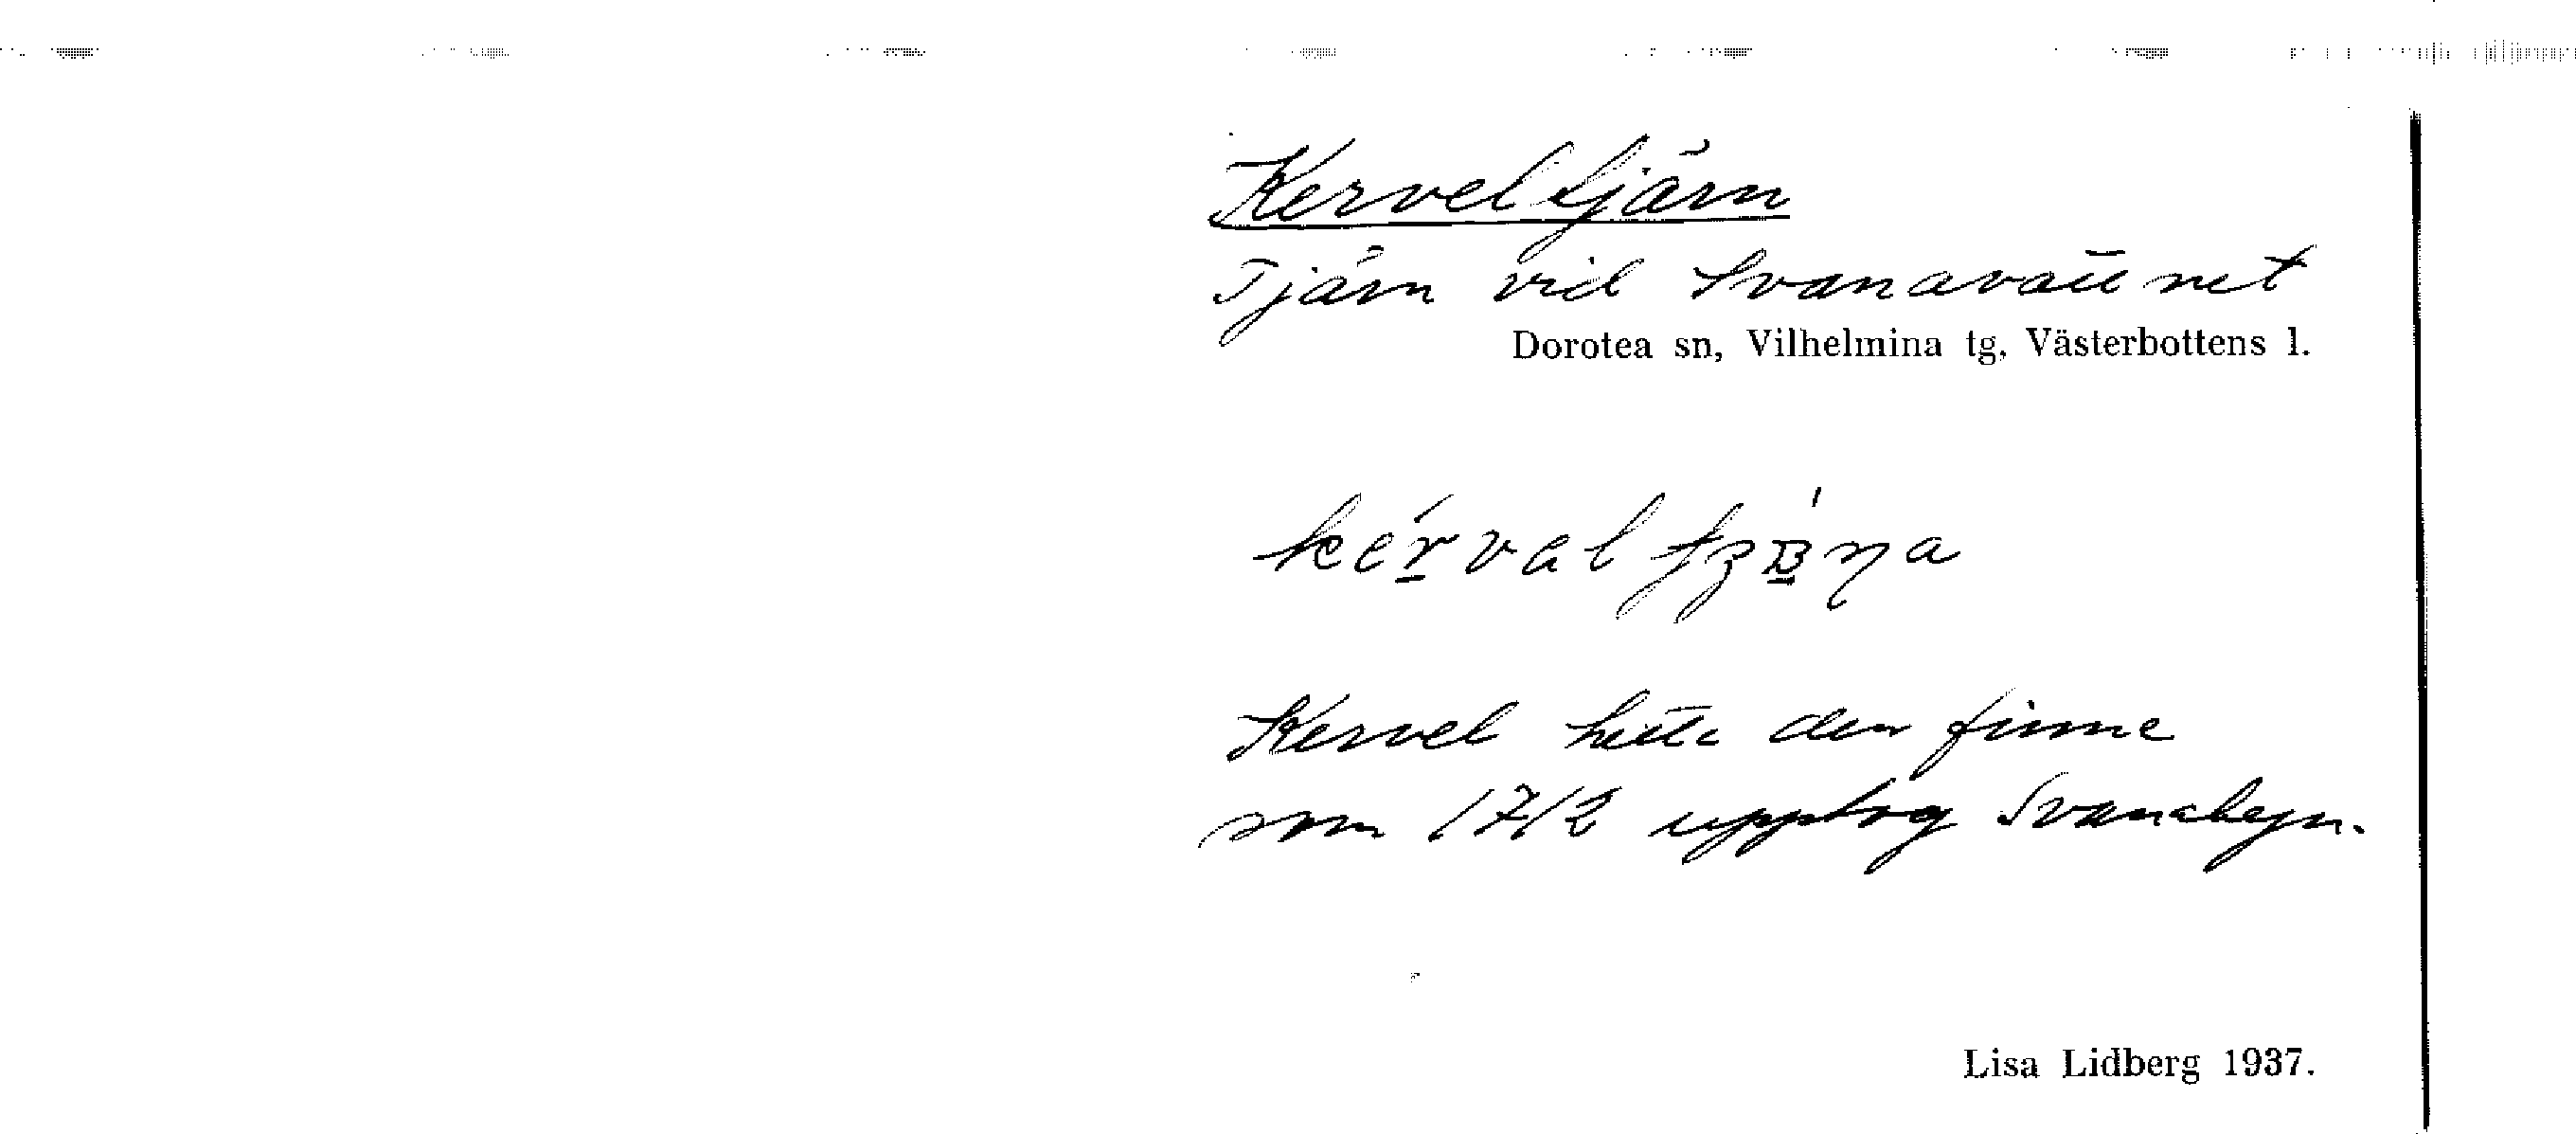 Kerveltjärn
Tjärn vid Svanavattnet
Dorotea sn, Vilhelmina tg, Västerbottens l.
Kervel hette den finne
som 1712 upptog Svanabyn.
Lisa Lidberg 1937.